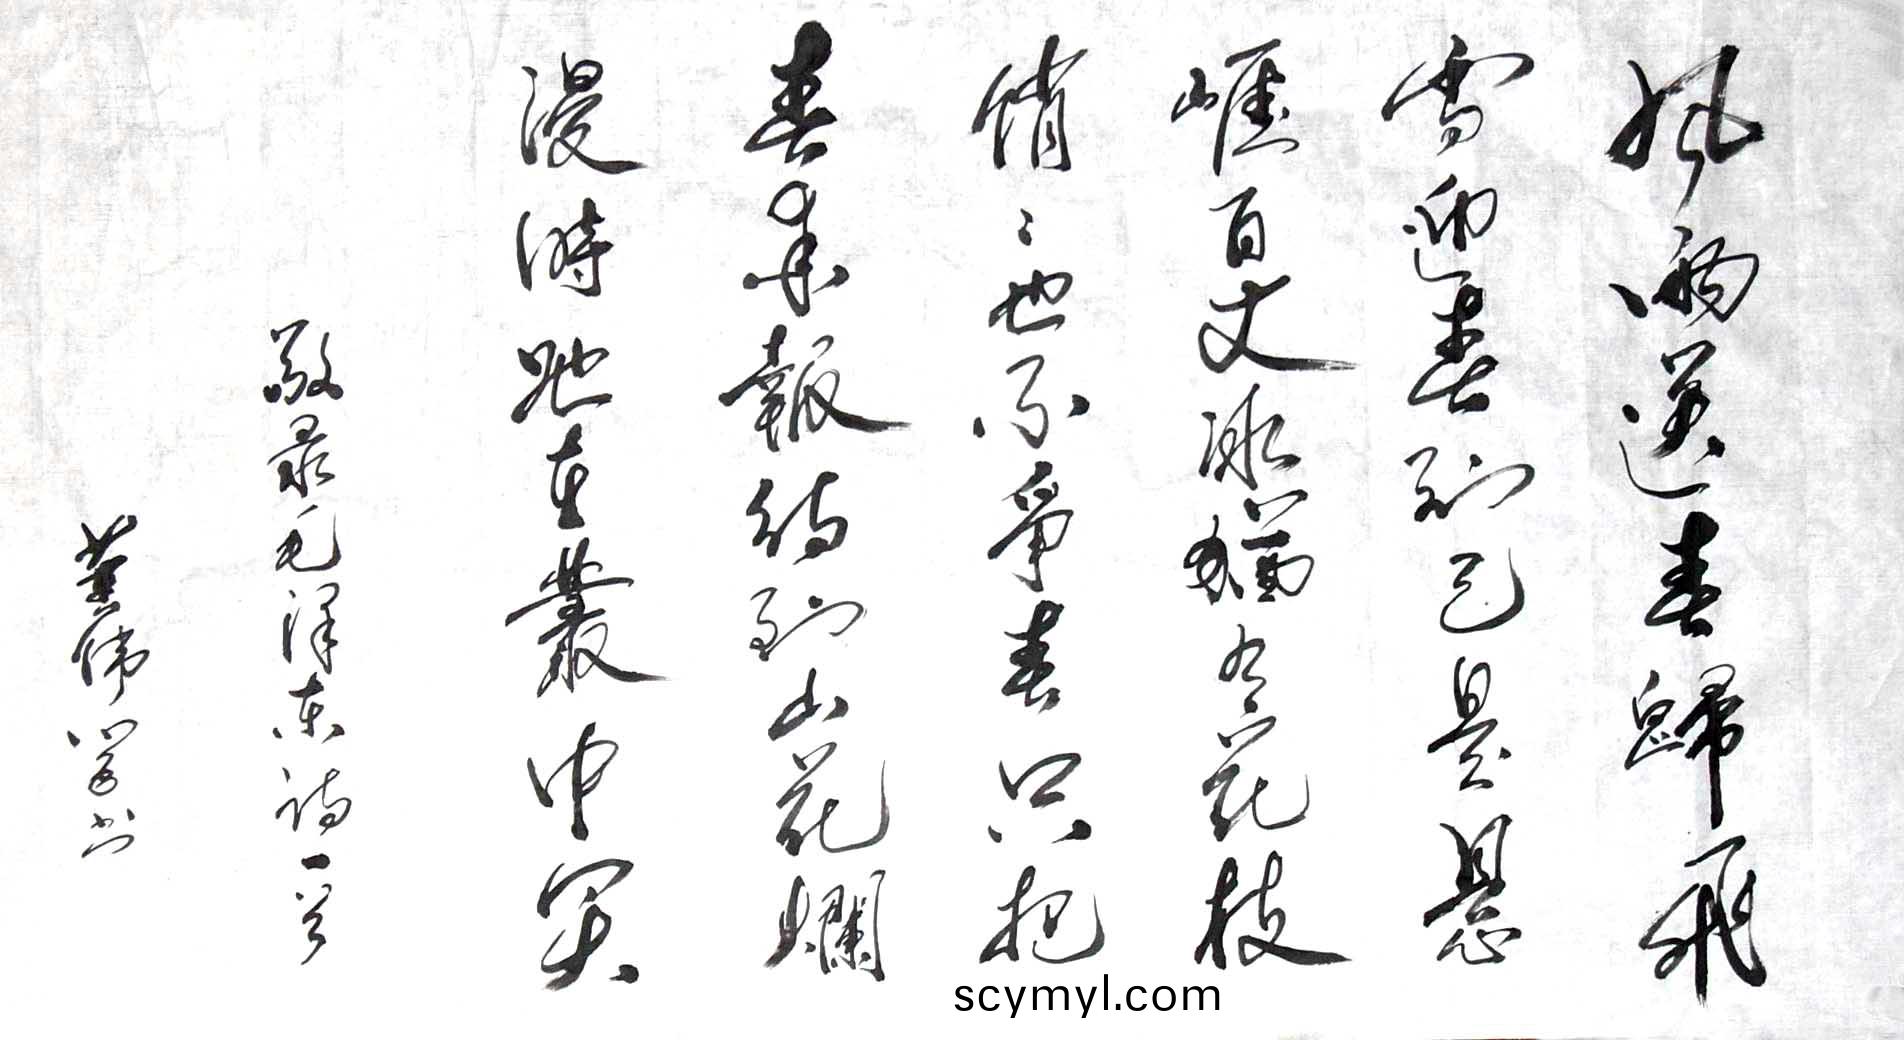 風雨送春歸飛
雪迎春到已是懸
崖百丈冰猶有花枝
俏〻也不爭春只把
春來報待到山花爛
漫時她在叢中笑
敬录毛泽东诗一首
偉学书
scymyl.com